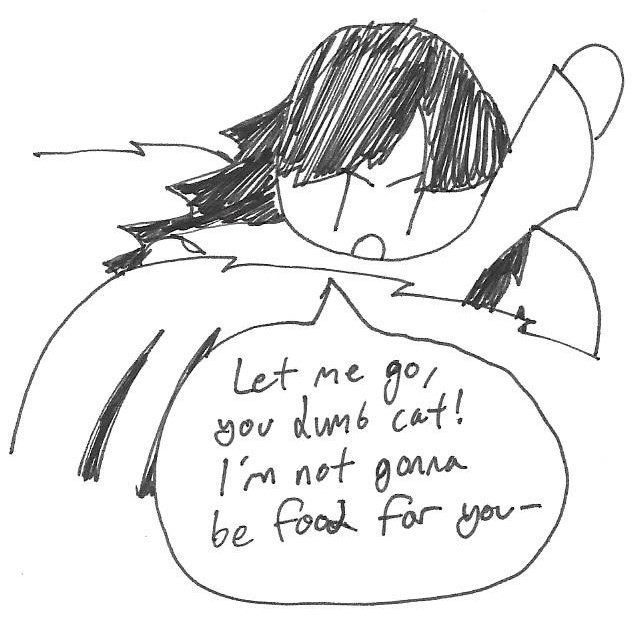 Let me go,
you dumb cat!
I'm not gonna
be food for you-